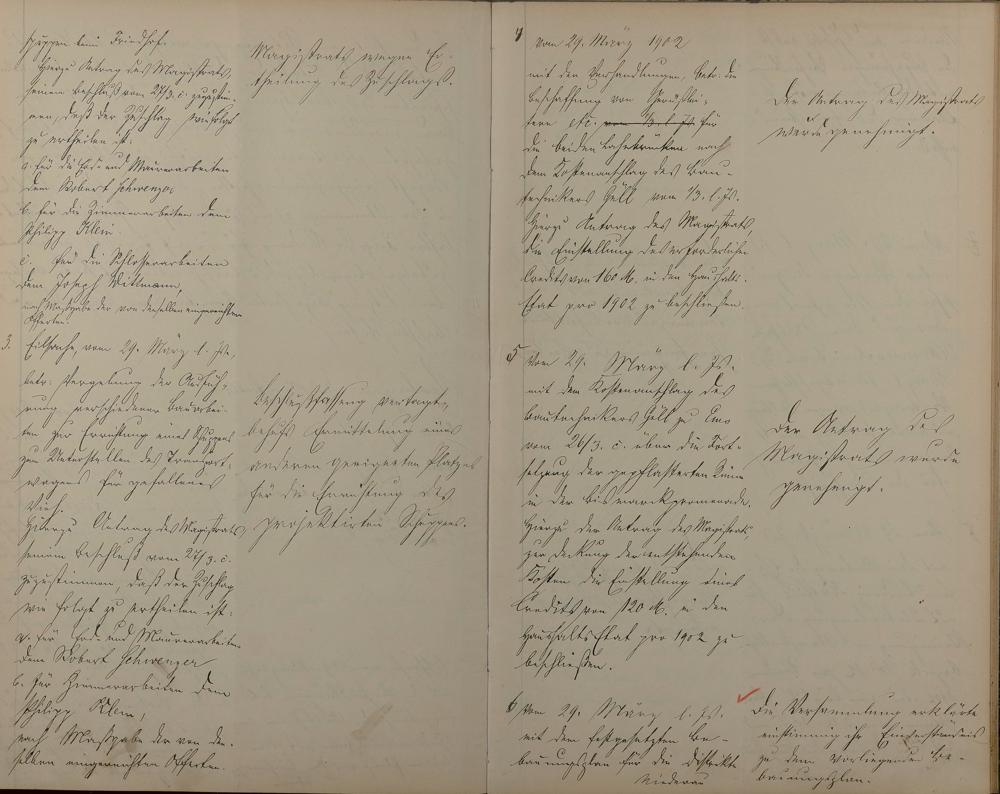 schuppen beim Friedhof.
Hierzu Antrag des Magistrats,
seinem Beschluß vom 27/3. c. zuzustim-
men, daß der Zuschlag wie folgt
zu ertheilen ist:
a. für die Erd- und Maurerarbeiten
dem Robert Schwenzer
b. für die Zimmerarbeiten dem
Philipp Klein.
c. für die Schlosserarbeiten
dem Joseph Wittmann,
nach Maßgabe der von denselben eingereichten
Offerten.
Magistrats wegen Er-
theilung des Zuschlags.
3. Eilsache, vom 29. März l. Js.,
betr. Vergebung der Ausfüh-
rung verschiedener Bauarbei-
ten zur Errichtung eines Schuppens
zum Unterstellen des Transport-
wagens für gefallenes
Vieh.
Hierzu Antrag des Magistrats,
seinem Beschluß vom 27/3. c.
zuzustimmen, daß der Zuschlag
wie folgt zu ertheilen ist:
a. für Erd- und Maurerarbeiten
dem Robert Schwenzer
b. für Zimmerarbeiten dem
Philipp Klein,
nach Maßgabe der von den-
selben eingereichten Offerten.
Beschlußfassung vertagt,
behufs Ermittelung eines
anderen geeigneten Platzes
für die Errichtung des
projektirten Schuppens.
4 vom 29. März 1902
mit den Verhandlungen, betr. die
Beschaffung von
etc. vom 13. l. Js. für
die beiden nach
dem Kostenanschlag des Bau-
technikers Göll vom 1/3. l. Js.
Hierzu Antrag des Magistrats,
die Einstellung des erforderlichen
Credits von 160 M. in den Haushalts-
Etat pro 1902 zu beschließen.
Der Antrag des Magistrats
wurde genehmigt.
5 vom 29. März l. Js.
mit dem Kostenanschlag des
Bautechnikers Göll zu Ems
vom 26/3. c. über die Fort-
setzung der gepflasterten Rinne
in der Bismarckpromenade.
Hierzu der Antrag des Magistrats,
zur Deckung der entstehenden
Kosten die Einstellung eines
Credits von 120 M. in den
Haushalts Etat pro 1902 zu
beschließen.
Der Antrag des
Magistrats wurde
genehmigt.
6 vom 29. März l. Js.
mit dem festgesetzten Be-
bauungsplan für die Distrikte
Niederau
Die Versammlung erklärte
einstimmig ihr Einverständnis
zu dem vorliegenden Be-
bauungsplan.